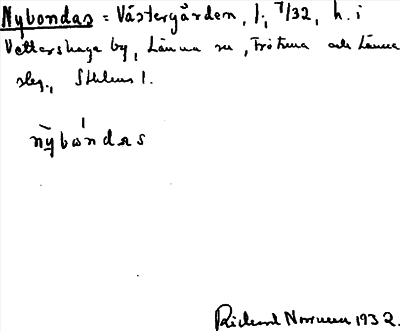 Nybondas = Västergården, 1, 7/32, h. i
Vettershaga by, Länna sn, Frötuna och Länna
slg., Sthlms l.
nybondas
Richard Norrman 1932.